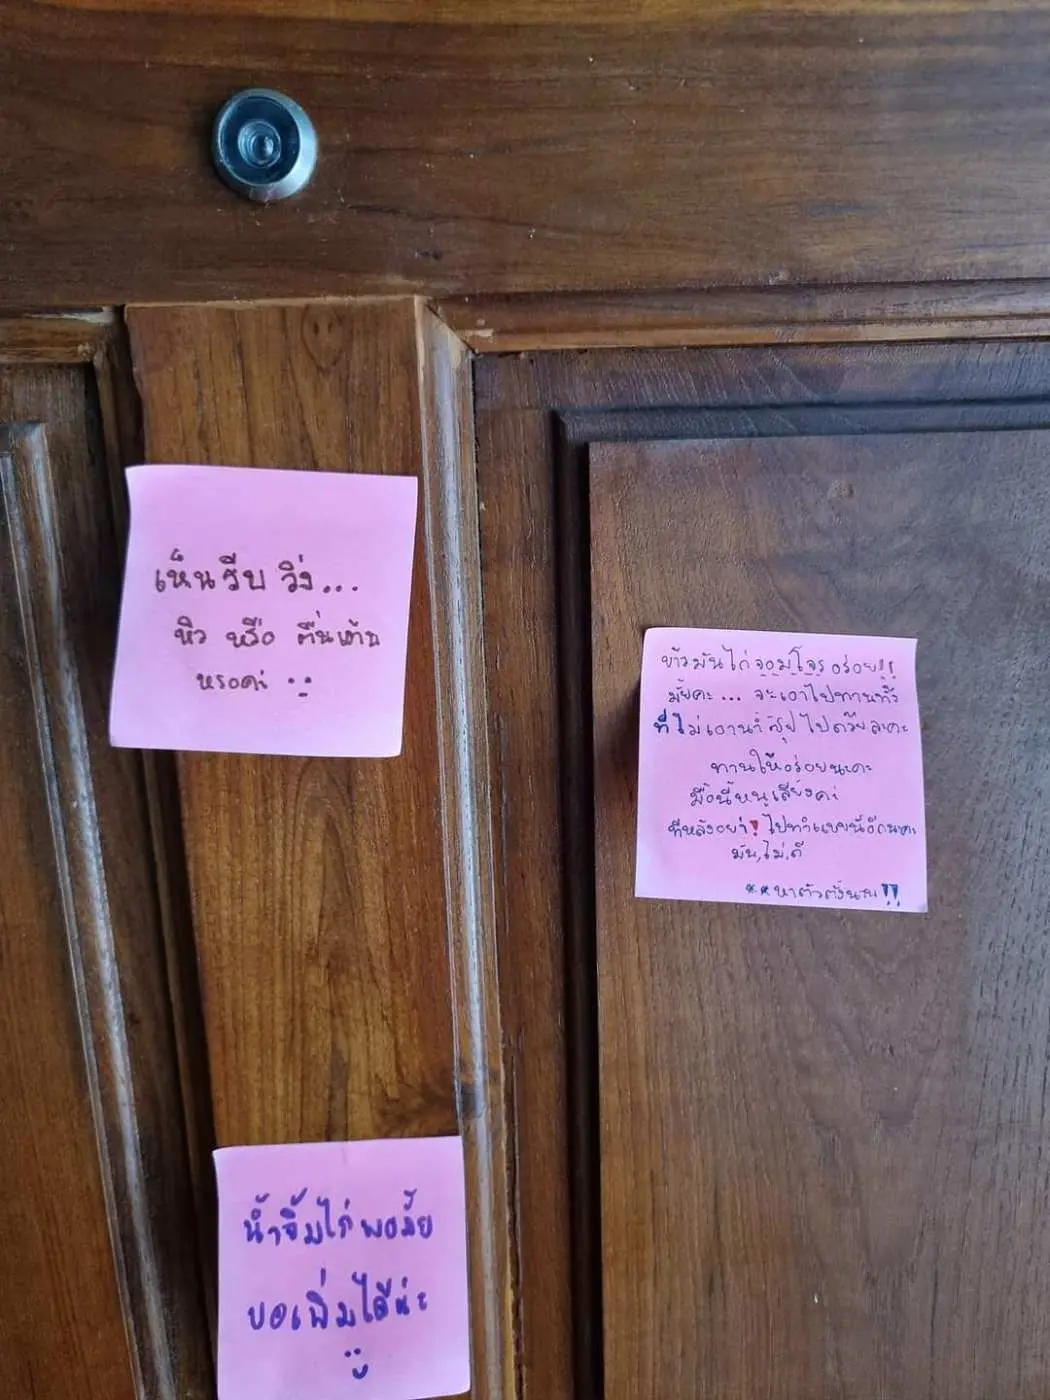 เห็นรีบ วิ่ง...
หิว หรือ ตื่นเต้น
หรอค่ะ
ข้าวมันไก่จอมโจร อร่อย!!
มั้ยคะ... จะเอาไปทานทั้ง
ที่ไม่เอาน้ำซุปไปด้วยละคะ
ทานให้อร่อยนะคะ
มื้อนี้หนูเลี้ยงค่ะ
ทีหลังอย่า! ไปทำแบบนี้อีกนะคะ
มัน,ไม่,ดี
**หาตัวตั้งนาน!!
น้ำจิ้มไก่พอมั้ย
ขอเพิ่มได้น่ะ